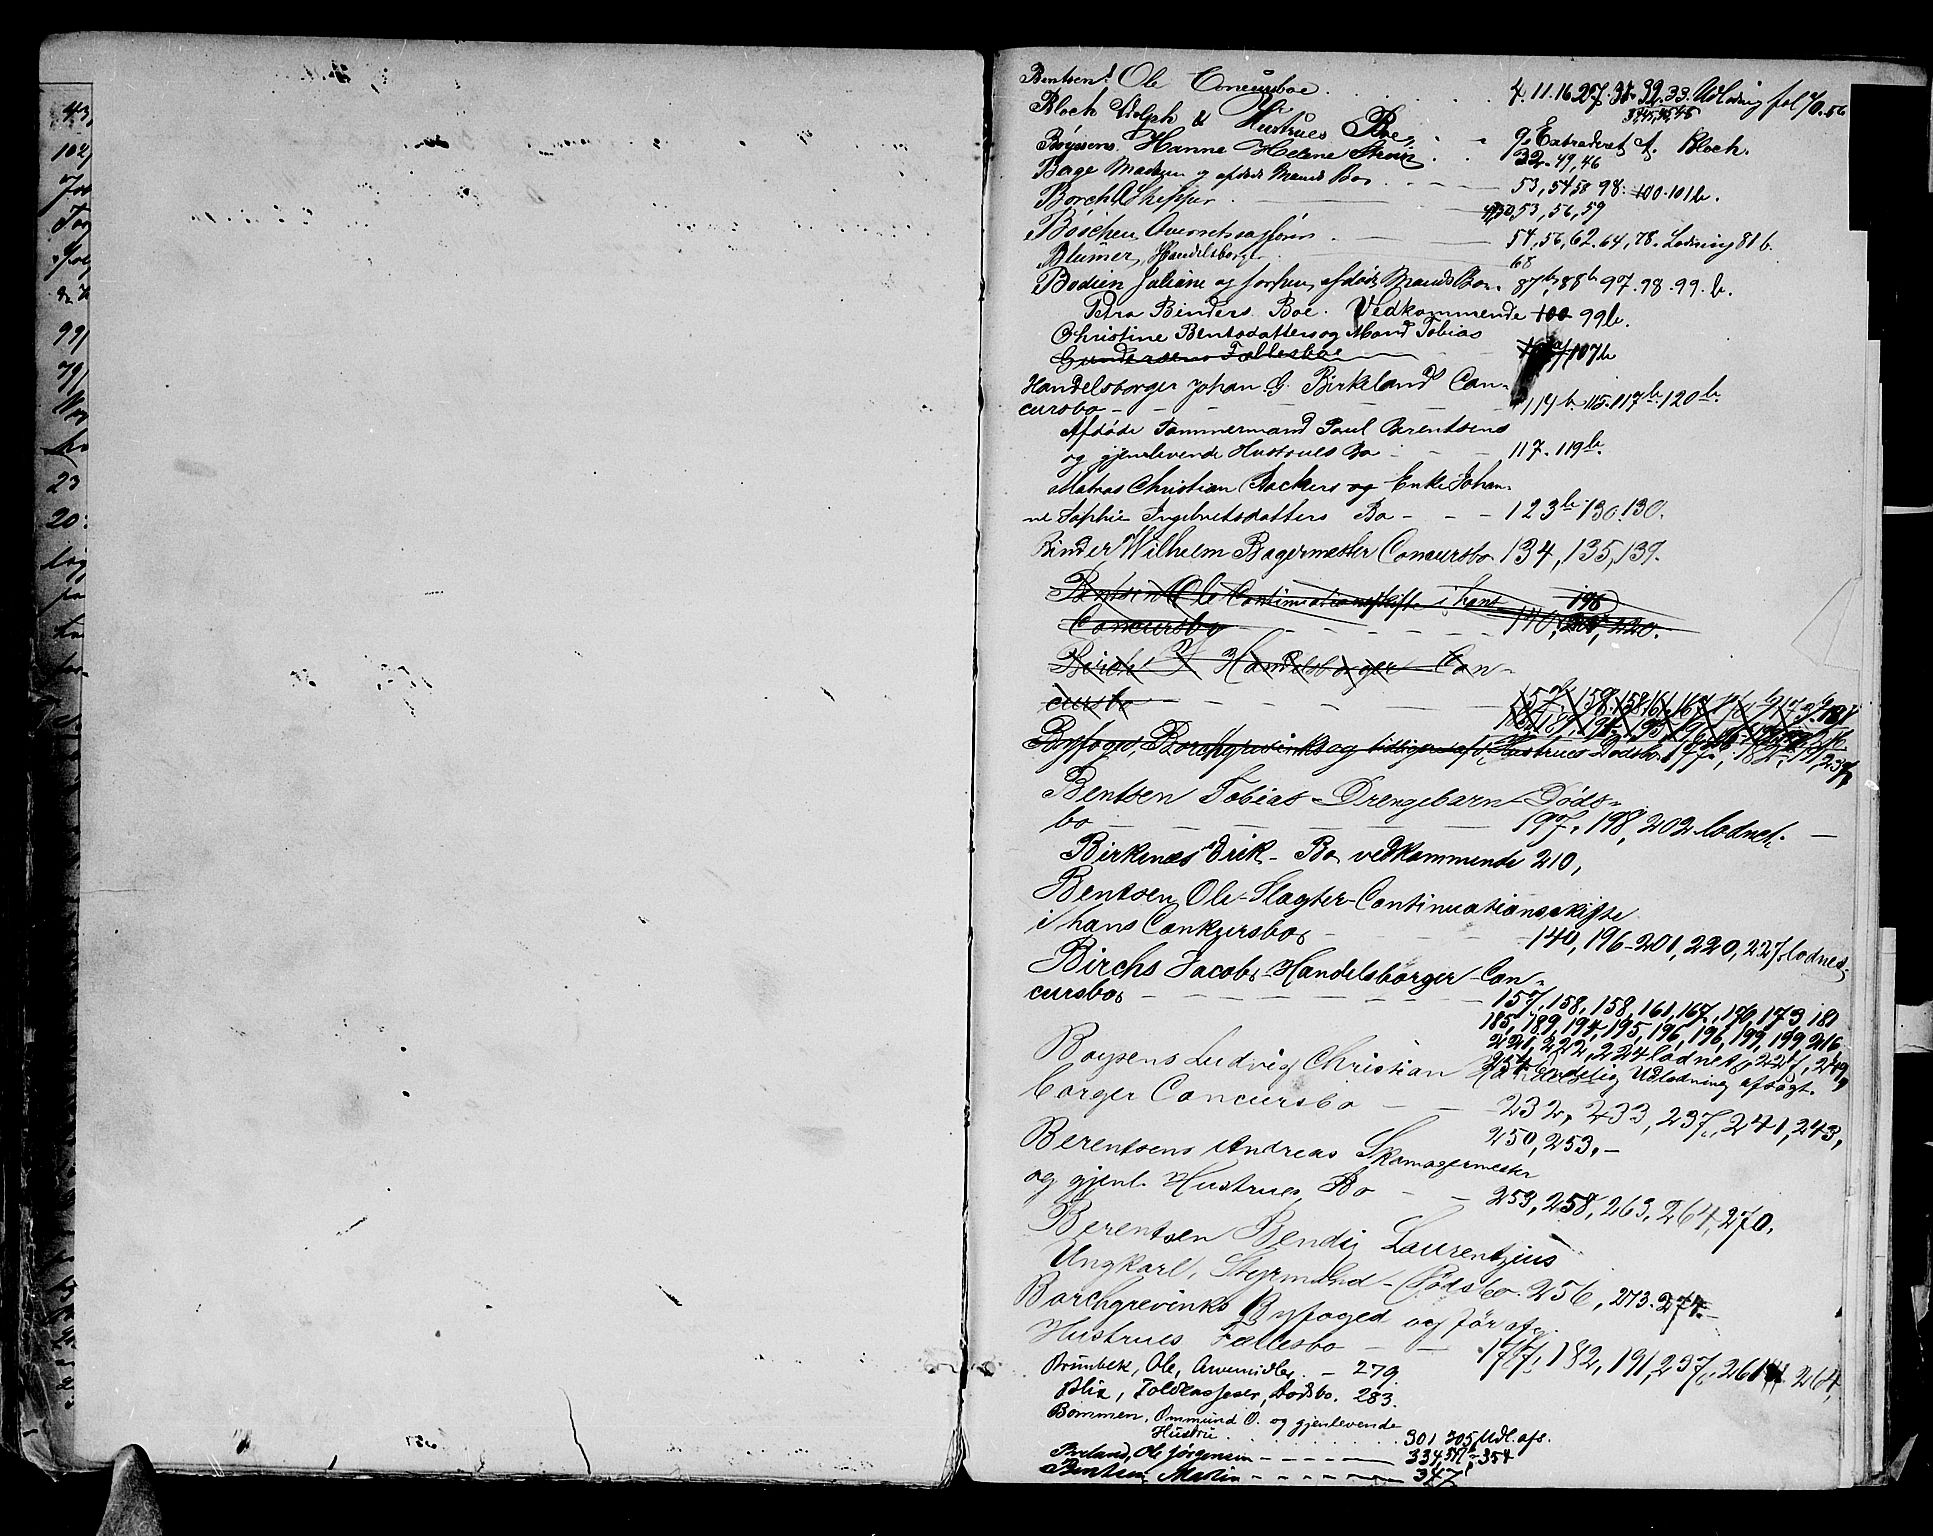 43,
102,
99,
79,
23
20.
Bentsen, Ole Concursboe 4. 11. 16 27. 31. 32. 33. Udlodning fol 70. 56
Bloch Adolph & Hustrues Boe, 9, Extraderet A. Bloch.
Boysens, Hanne Helene 32. 49, 46
Borge Madsen og afdøde Mands Bo 53, 54 58 98. 100. 101b.
Borch Skipper 53, 56, 59
Böschen Overretssagfører 54, 56, 62, 64, 78. Lodning 81 b.
Blumer, Handelsborger 68
Bodien Juliane og forhen afdøde Mands Bo. 87b, 88b 97. 98. 99. b.
Petra Binders Boe. Vedkommende 100 99b.
Christine Bentsdatters og Mand Tobias
Gundersens Fællesboe 107b
Handelsborger Johan G. Birkeland Con-
cursbo 114b. 115. 117b. 120b.
Afdøde Tømmermand Paul Berentsens
og gjenlevende Hustrues Bo 117. 119b.
Matros Christian Backers og Enke Johan-
ne Sophie Ingebretsdatters Bo 123b 130. 130.
Binder Wilhelm Bagermester Concursbo 134, 135, 139.
Bentsen Ole Continuationsskifte i hans 196
Concursbo 140, 201, 220.
Birch J Handelsborger Con-
cursbo 157, 158, 158, 161, 167
Byfoged, Borchgrevinks og tidligere afd. Hustrues Dødsbo 177, 182, 191, 237,
Bentsen Tobias Drengebarn Døds-
bo 197, 198, 202 lodnet.
Birkenæs Erik Bo vedkommende 210,
Bentsen, Ole Slagter Continuationsskifte
i hans Conkursbo 140, 196 201, 220, 227 lodnet
Birchs Jacob, Handelsborger Con-
cursbo 157, 158, 158, 161, 167, 170, 173 181
185, 189, 194, 195, 196, 196, 199, 199, 216
221, 222, 224 lodnet, 224, 249,
254 Endelig Udlodning afsagt.
Boysens Ludvig Christian Handels-
borger Concursbo 232, 233, 237, 241, 243,
250, 253.
Berentsens Andreas Skomagermester
og gjenl. Hustrues Bo 253, 258, 263, 264, 270.
Berentsen Bendix Laurentzius
Ungkarl, Styrmand Dødsbo. 256, 273. 274.
Borchgrevinks Byfoged og før afd.
Hustrues Fællesbo 177, 182, 191, 237, 261 264,
Brunbek, Ole, Arvemidler. 279.
Blix, Toldkasserer, Dødsbo. 283.
Bommen, Ommund O. og gjenlevende
Hustru 301 305 Udl. afs.
Breland, Ole Jørgensen 334, 354
Bentsen Martin 347,